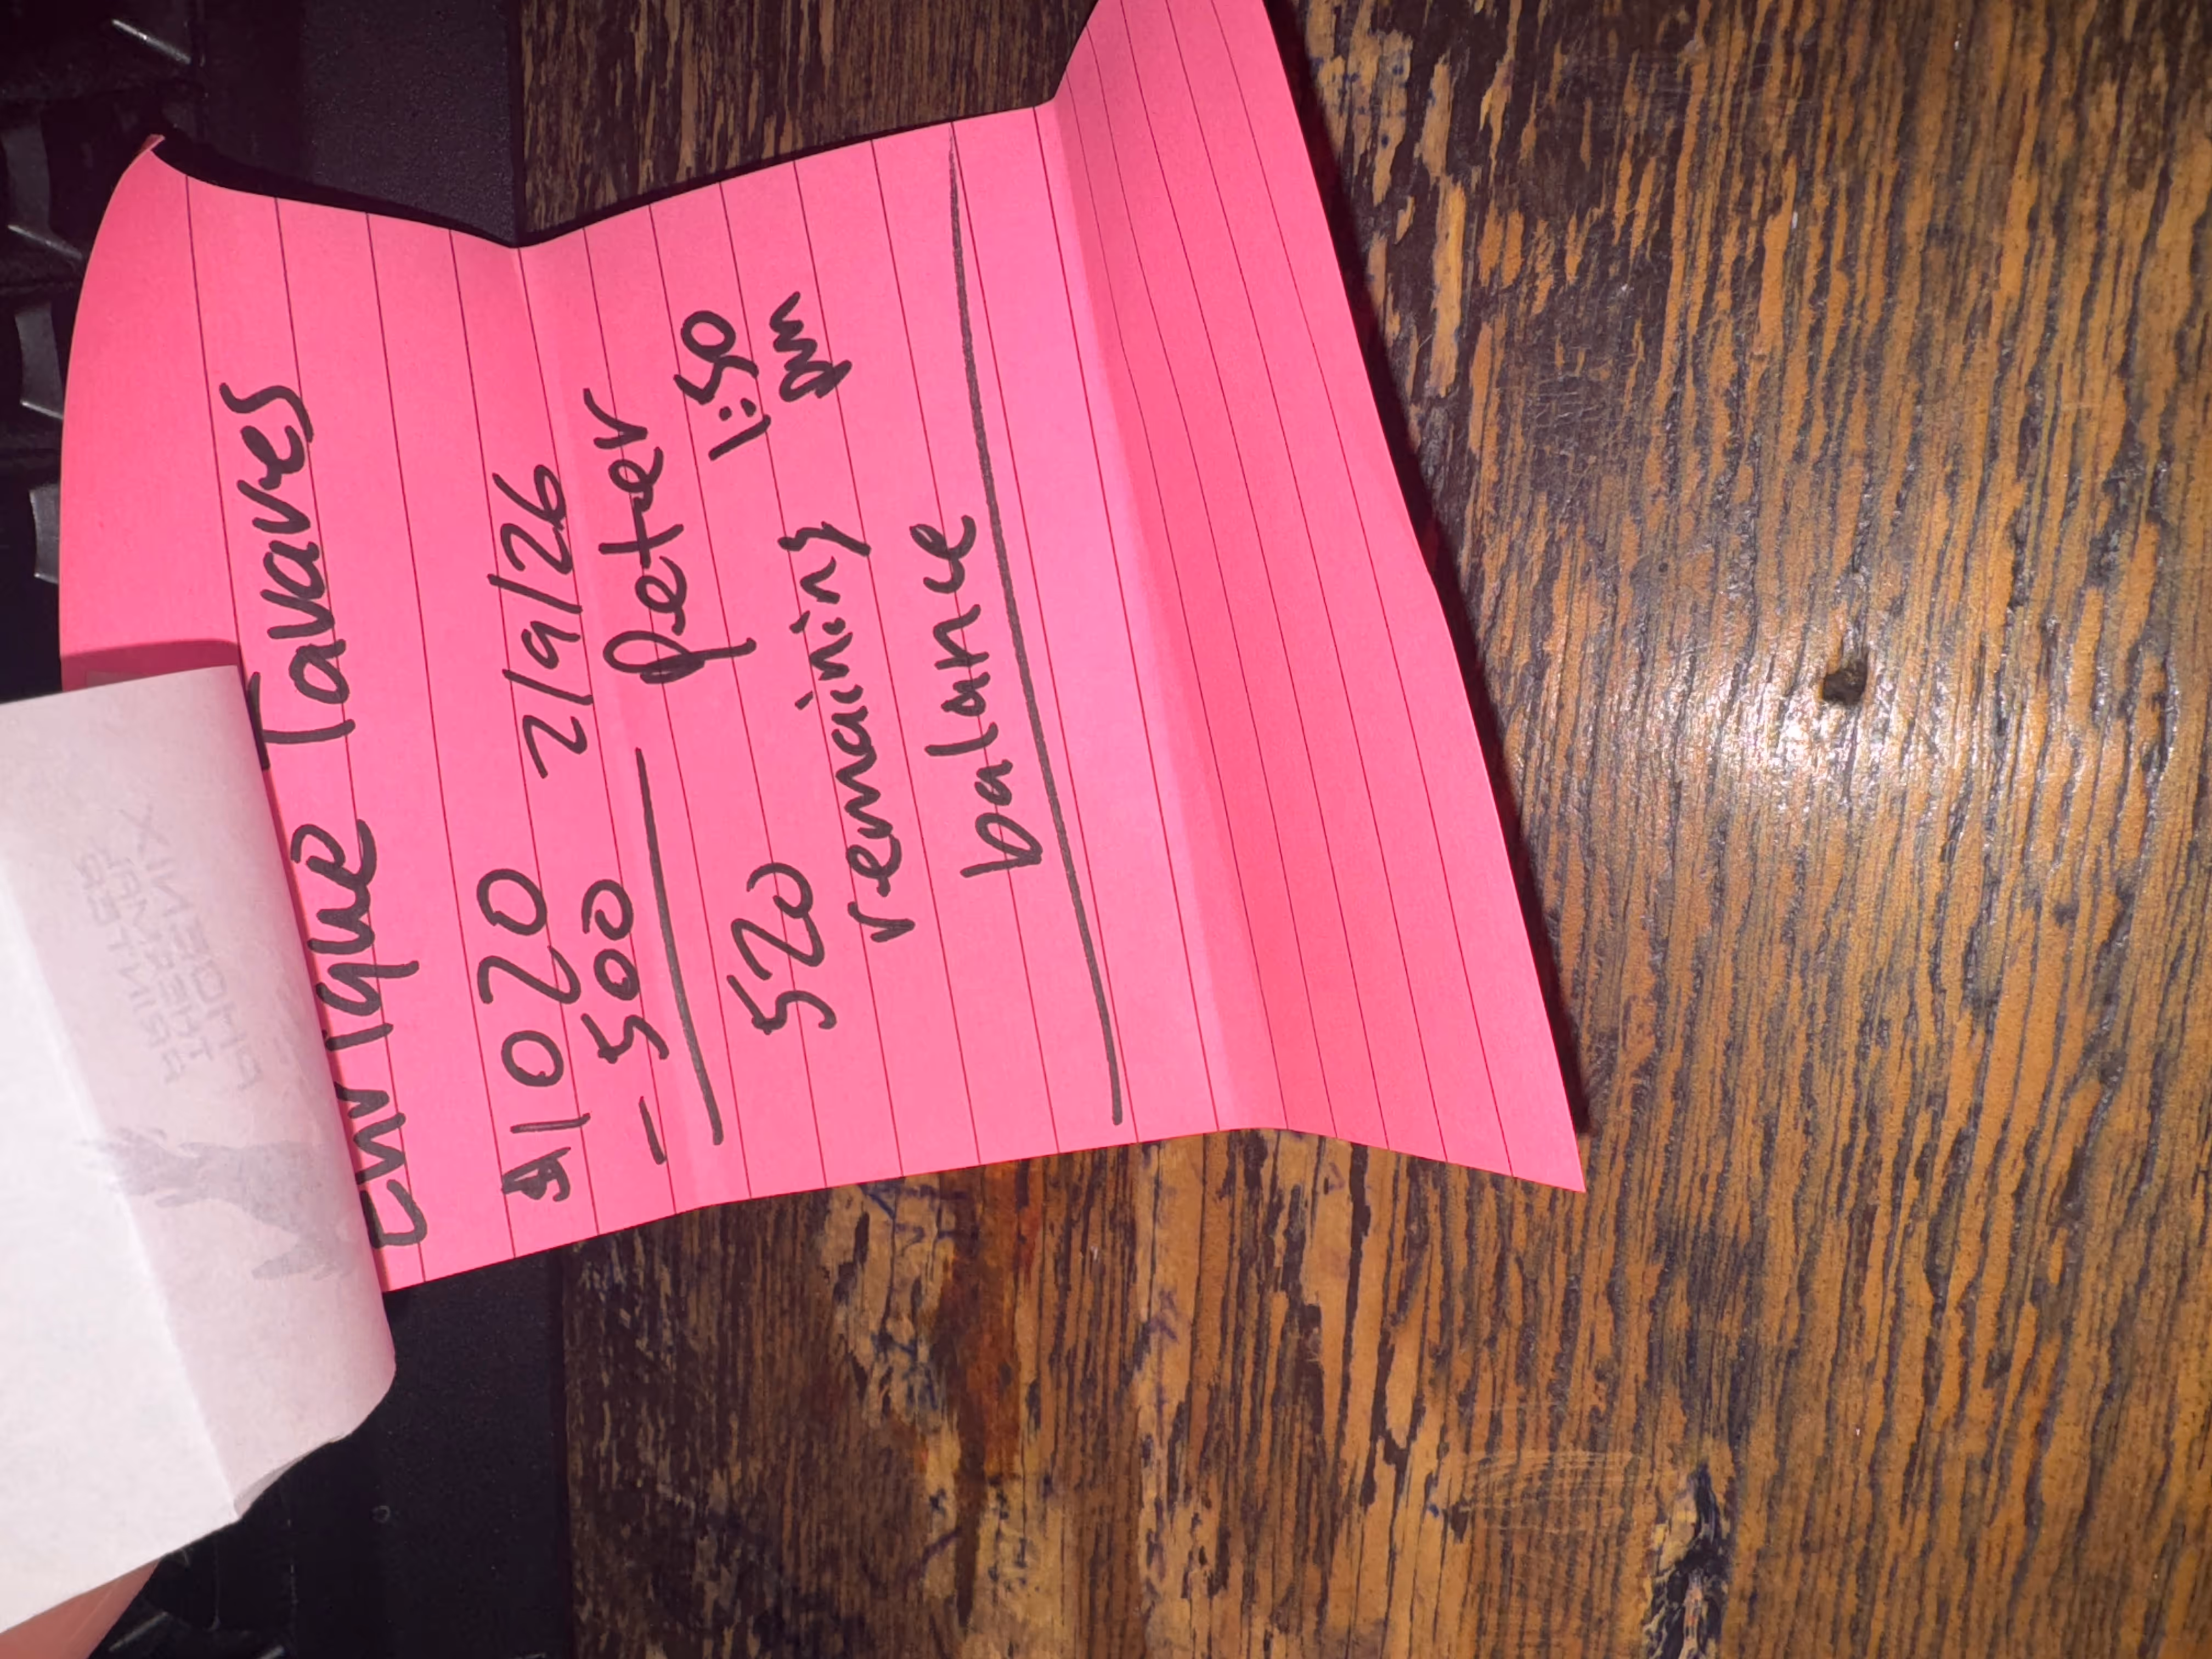 Enrique Tavares
$1020 2/9/26
- 500 Peter
1:50
pm
520
remaining
balance
PHOENIX
THERMAL
PRINTER